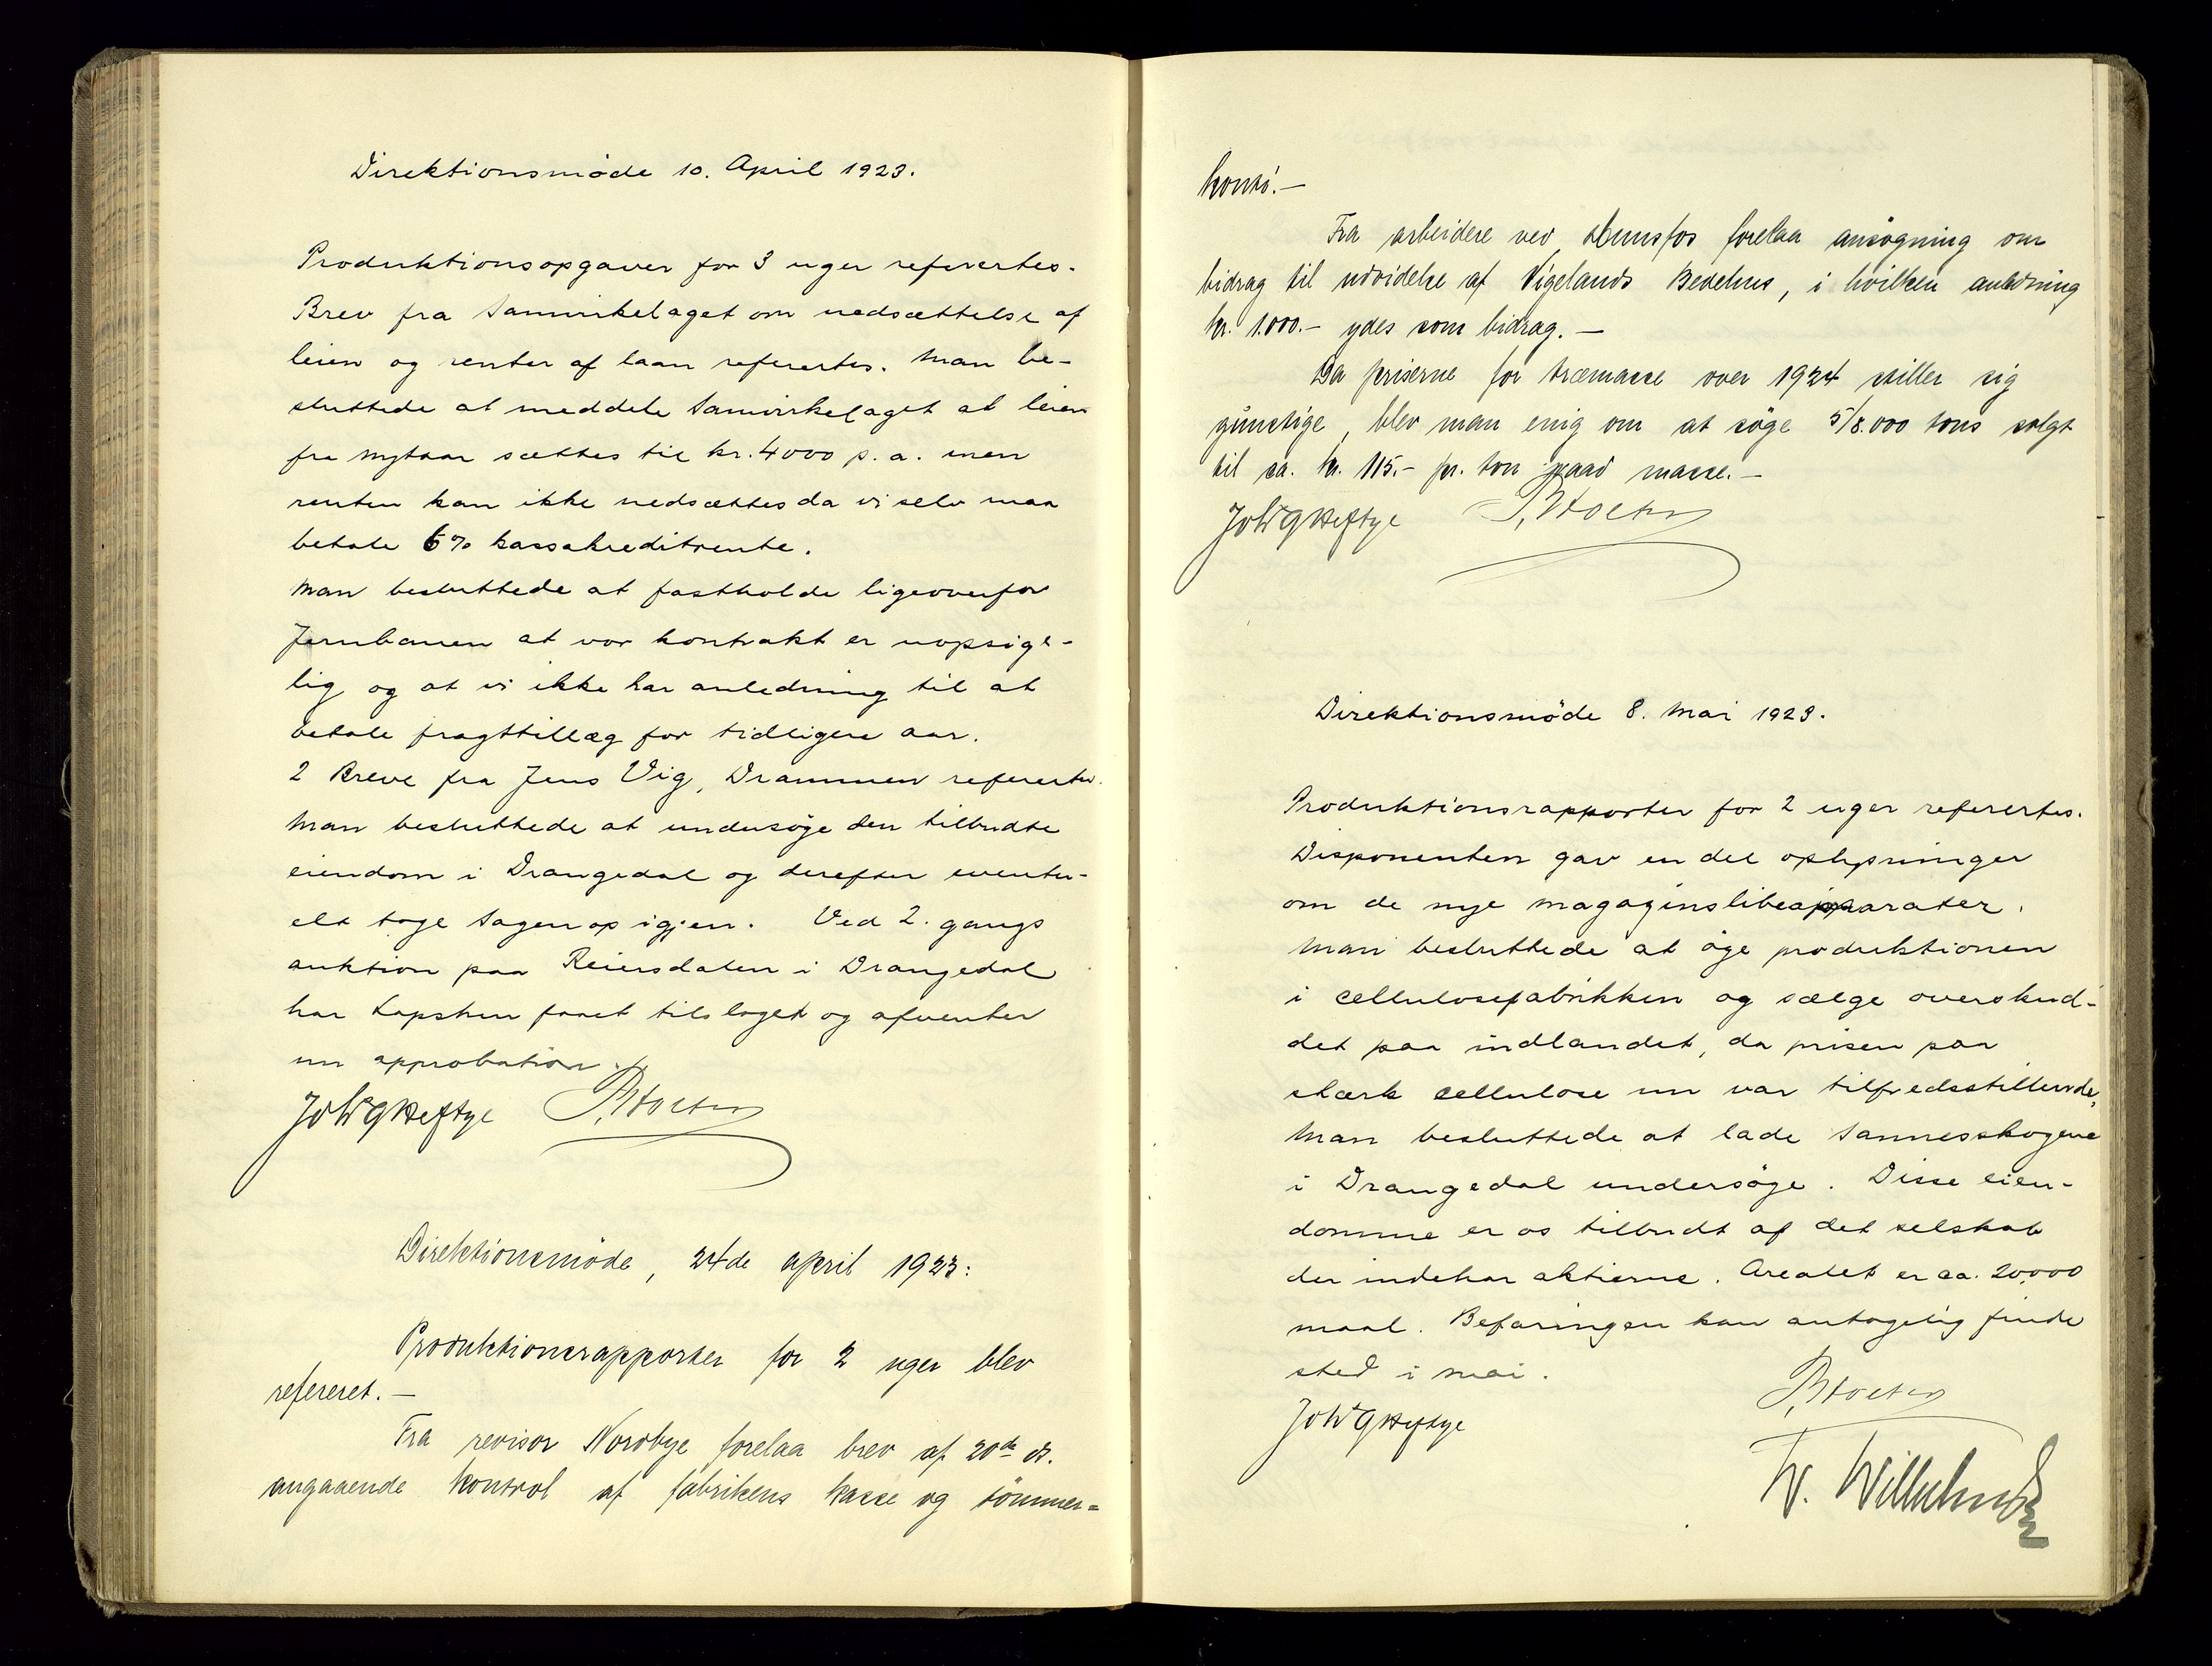 Direktionsmöde 10. April 1923.
Produktionsopgaver for 3 uger refertes.
Brev fra Samvirkelaget om nedsættelse af
leien og renter af laan refertes. Man be-
sluttede at meddele Samvirkelaget at leien
fra nytaar sættes til kr. 4000 p. a. men
renten kan ikke nedsættes da vi selv maa
betale 6% kassakreditrente.
Man besluttede at fastholde ligeoverfor
Jernbanen at vor kontrakt er uopsige-
lig og at vi ikke har anledning til at
betale fragttillæg for tidligere aar.
2 Breve fra Jens Vig, Drammen refertes.
Man besluttede at undersöge den tilbudte
eiendom i Drangedal og derefter eventu-
elt tage sagen op igjen. Ved 2. gangs
auktion paa Reiersdalen i Drangedal
har faaet tilslaget og afventer
nu approbation.
Joh Heftye
Direktionsmöde, 24de april 1923:
Produktionsrapporter for 2 uger blev
refereret. —
Fra revisor Nordbye forelaa brev af 20de ds.
angaaende kontrol af fabrikens kasse og tömmer=
konti. —
Fra arbeidere ved Hunsfos forelaa ansögning om
bidrag til udvidelse af Vigelands Bedehus, i hvilken anledning
kr. 1.000.- ydes som bidrag. —
Da priserne for træmasse over 1924 stiller sig
gunstige, blev man enig om at söge 5/8.000 tons solgt
til ca. kr. 115.- pr. ton vaad masse. —
Joh Heftye
Direktionsmöde 8. Mai 1923.
Produktionsrapporter for 2 uger refertes.
Disponenten gav en del oplysninger
om de nye magazinslibeapparater.
Man besluttede at öge produktionen
i cellulosefabrikken og sælge overskud-
det paa indlandet, da prisen paa
stærk cellulose nu var tilfredsstillende.
Man besluttede at lade Sannesskogene
i Drangedal undersöge. Disse eien-
domme er os tilbudt af det selskab
der indehar aktierne. Arealet er ca. 20,000
maal. Befaringen kan antagelig finde
sted i mai.
Joh Heftye
W. Wilhelmsen